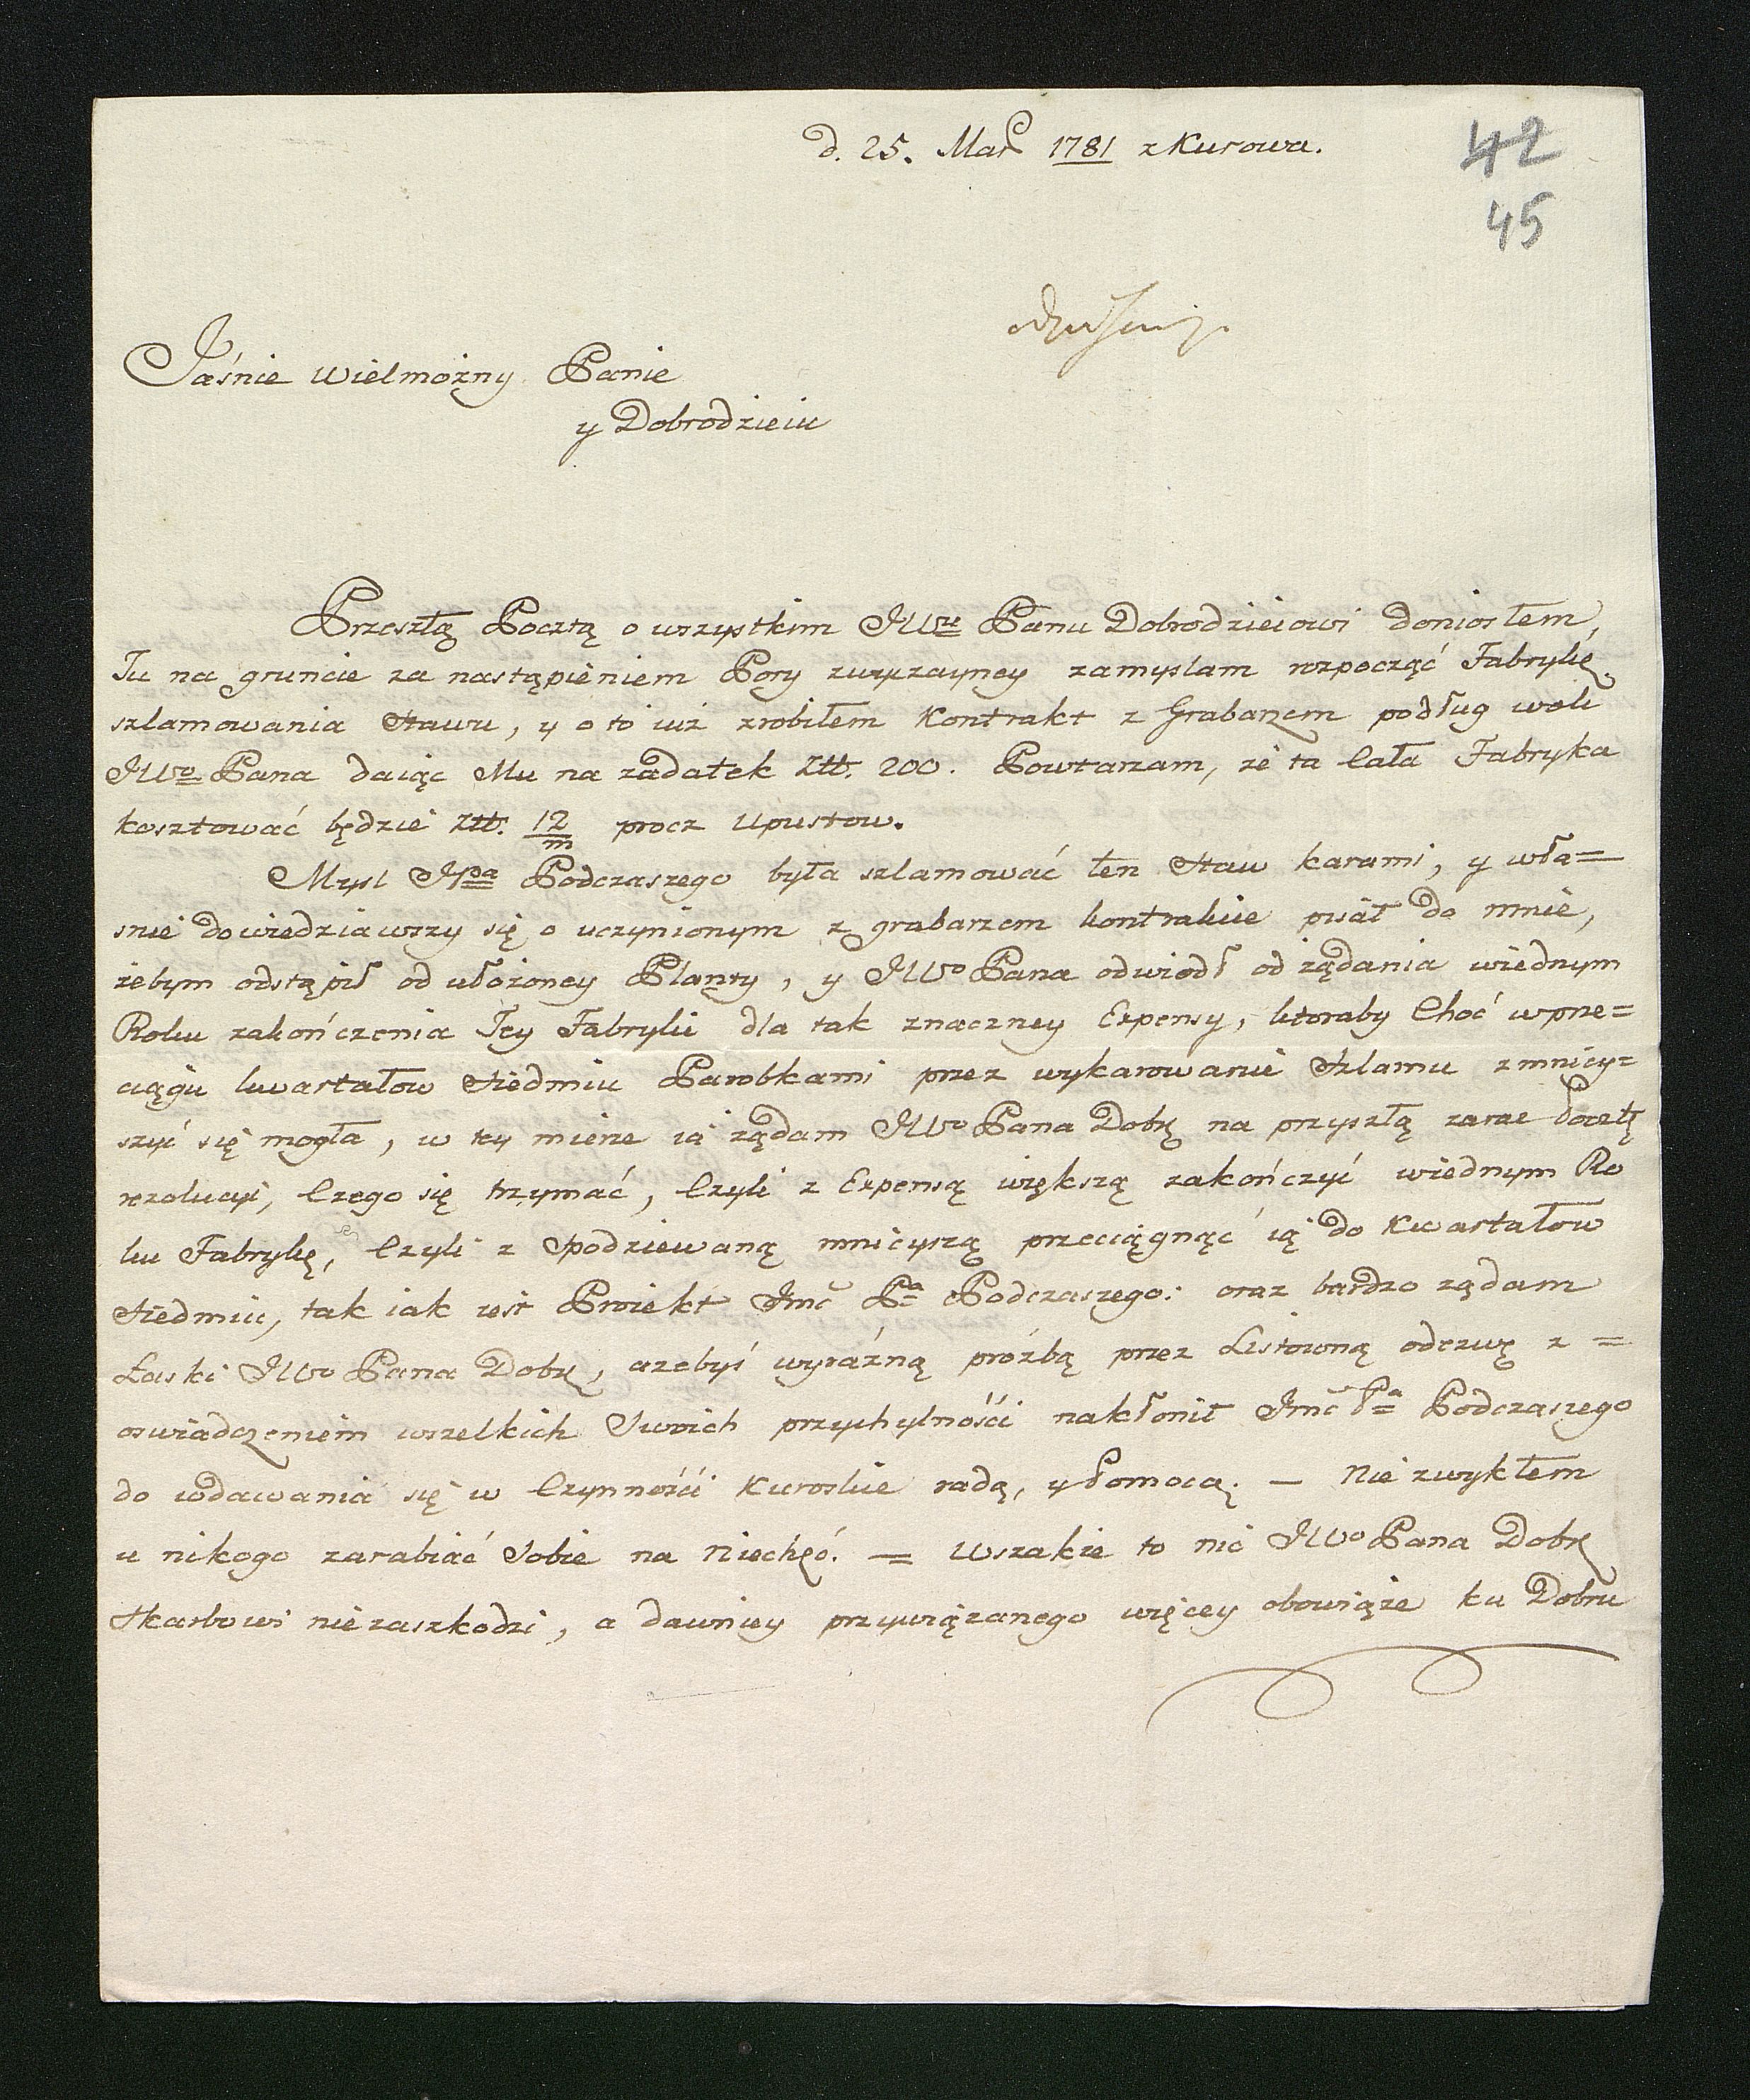 d. 25. Mar 1781 z Kurowa.
42
45
Jaśnie Wielmożny Panie
y Dobrodzieiu
Przeszłą Pocztą o wszystkim JWu Panu Dobrodzieiowi doniosłem,
Tu na gruncie za nastąpieniem Pory zwyzayney zamyslam rozpocząć Fabrykę
szlamowania Stawu, y o to iuż zrobiłem Kontrakt z Grabarzem podług woli
JWo Pana daiąc Mu na zadatek Złł. 200. Powtarzam, że ta Cała Fabryka
kosztować będzie Złł. 12/m procz Upustow.
Mysl JPa Podczaszego była szlamować ten Staw karami, y wła=
snie dowiedziawszy się o uczynionym z grabarzem kontrakcie pisał do mnie,
żebym odstąpił od ułożoney Planty, y JWo Pana odwiodł od żądania wiednym
Roku zakończenia Tey Fabryki dla tak znaczney Expensy, ktoraby Choć wprze=
ciągu kwartałow Siedmiu Parobkami przez wykarowanie Szlamu zmniey=
szyć się mogła, w tey mierze ia żądam JWo Pana Dobr na przyszłą zaraz Pocztę
rezolucyi, Czego się trzymać, Czyli z Expensą większą zakończyć wiednym Ro
ku Fabrykę, Czyli z Spodziewaną mnieyszą przeciągnąć ią do Kwartałow
Siedmiu, tak iak iest Proiekt Jmć Pa Podczaszego: oraz bardzo żądam
Łaski JWo Pana Dobr, azebyś wyrázną prózbą przez Listowną odezwę z =
oswiadczeniem wszelkich Swoich przychylnośći nakłonił Jmć Pa Podczaszego
do wdawania się w Czynnośći Kuroskie radą, y Pomocą. — Nie zwykłem
u nikogo zarabiać Sobie na Niechęć. = Wszakże to nic JWo Pana Dobr
Skarbowi niezaszkodzi, a dawniey przywiązanego więcey obowiąże ku Dobru